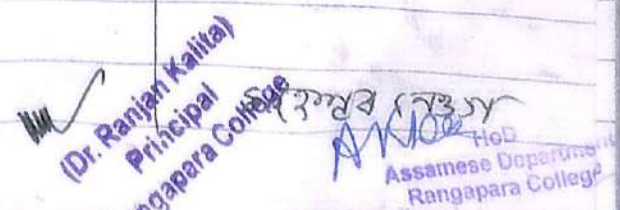 (Dr. Ranjan Kalita)
Principal
ngapara College
নেওগ
HoD
Assamese Departmen
Rangapara College